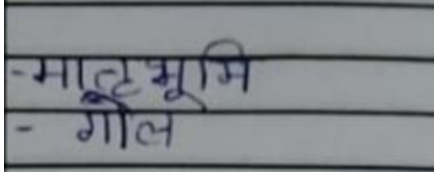 - मातृभूमि
- गोल